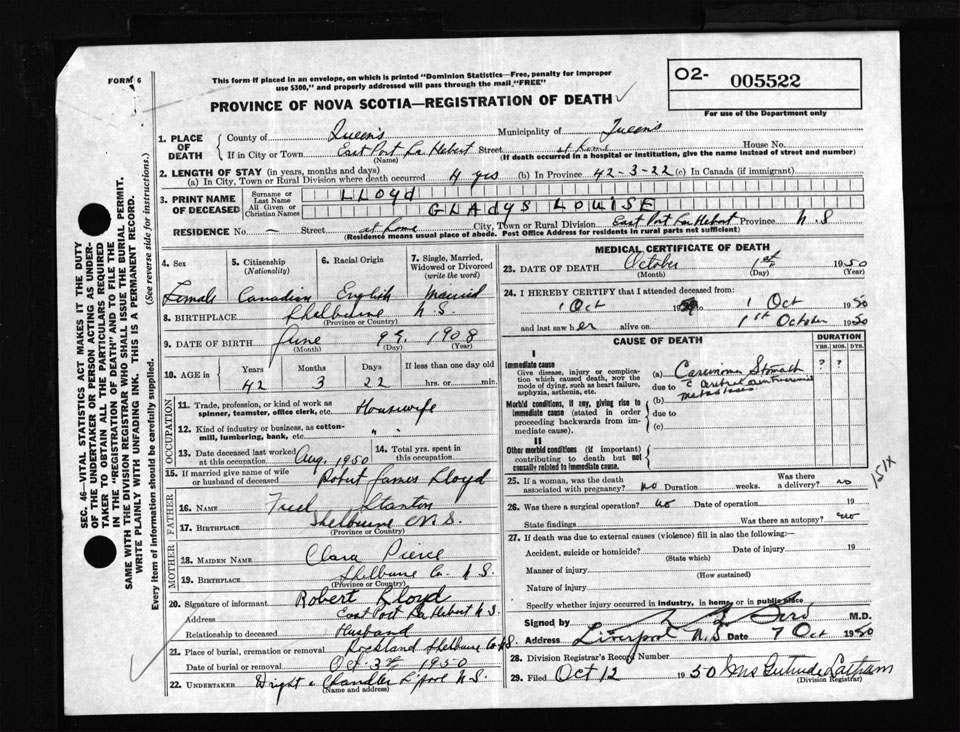 FORM 6
This form if placed in an envelope, on which is printed "Dominion Statistics—Free, penalty for improper
use $300," and properly addressed will pass through the mail "FREE"
PROVINCE OF NOVA SCOTIA—REGISTRATION OF DEATH
O2- 005522
For use of the Department only
SEC. 46—VITAL STATISTICS ACT MAKES IT THE DUTY
OF THE UNDERTAKER OR PERSON ACTING AS UNDER-
TAKER TO OBTAIN ALL THE PARTICULARS REQUIRED
IN THE "REGISTRATION OF DEATH" AND TO FILE THE
SAME WITH THE DIVISION REGISTRAR WHO SHALL ISSUE THE BURIAL PERMIT.
WRITE PLAINLY WITH UNFADING INK. THIS IS A PERMANENT RECORD.
Every item of information should be carefully supplied. (See reverse side for instructions.)
1. PLACE OF DEATH
County of Queens Municipality of Queens
If in City or Town East Port La Hebert Street at home House No.
(Name) (If death occurred in a hospital or institution, give the name instead of street and number)
2. LENGTH OF STAY (in years, months and days)
(a) In City, Town or Rural Division where death occurred 4 yrs (b) In Province 42-3-22 (c) In Canada (if immigrant)
3. PRINT NAME OF DECEASED
Surname or Last Name LLOYD
All Given or Christian Names GLADYS LOUISE
RESIDENCE No. — Street at home City, Town or Rural Division East Port La Hebert Province N.S
(Residence means usual place of abode. Post Office Address for residents in rural parts not sufficient)
4. Sex 5. Citizenship (Nationality) 6. Racial Origin 7. Single, Married, Widowed or Divorced (write the word)
Female Canadian English Married
8. BIRTHPLACE Shelburne N.S.
(Province or Country)
9. DATE OF BIRTH June 9th 1908
(Month) (Day) (Year)
10. AGE in Years Months Days If less than one day old
42 3 22 hrs. or min.
OCCUPATION
11. Trade, profession, or kind of work as spinner, teamster, office clerk, etc. Housewife
12. Kind of industry or business, as cotton-mill, lumbering, bank, etc. "
13. Date deceased last worked at this occupation Aug. 1950 14. Total yrs. spent in this occupation
15. If married give name of wife or husband of deceased Robert James Lloyd
FATHER
16. NAME Fred Stanton
17. BIRTHPLACE Shelburne N.S.
(Province or Country)
MOTHER
18. MAIDEN NAME Clara Pierce
19. BIRTHPLACE Shelburne Co. N.S.
(Province or Country)
20. Signature of informant Robert Lloyd
Address East Port La Hebert N.S
Relationship to deceased Husband
21. Place of burial, cremation or removal Rockland Shelburne Co N.S.
Date of burial or removal Oct-3rd 1950
22. UNDERTAKER Wright & Chandler L'pool N.S.
(Name and address)
MEDICAL CERTIFICATE OF DEATH
23. DATE OF DEATH October 1st 1950
(Month) (Day) (Year)
24. I HEREBY CERTIFY that I attended deceased from
1 Oct 1 Oct 1950
and last saw her alive on 1st October 1950
CAUSE OF DEATH
DURATION
YRS. MOS. DYS.
I
Immediate cause
Give disease, injury or complication which caused death, NOT the mode of dying, such as heart failure, asphyxia, asthenia, etc.
(a) Carcinoma Stomach ? ?
due to
Metastases
(b)
Morbid conditions, if any, giving rise to immediate cause (stated in order proceeding backwards from immediate cause).
due to
(c)
II
Other morbid conditions (if important) contributing to death but not causally related to immediate cause.
151X
25. If a woman, was the death associated with pregnancy? no Duration weeks. Was there a delivery? no
26. Was there a surgical operation? no Date of operation 19
State findings Was there an autopsy? no
27. If death was due to external causes (violence) fill in also the following:—
Accident, suicide or homicide? Date of injury 19
(State which)
Manner of injury
(How sustained)
Nature of injury
Specify whether injury occurred in industry, in home, or in public place
Signed by M.D.
Address Liverpool N.S Date 7 Oct 1950
28. Division Registrar's Record Number
29. Filed Oct 12 1950 Mrs Gertrude
(Division Registrar)